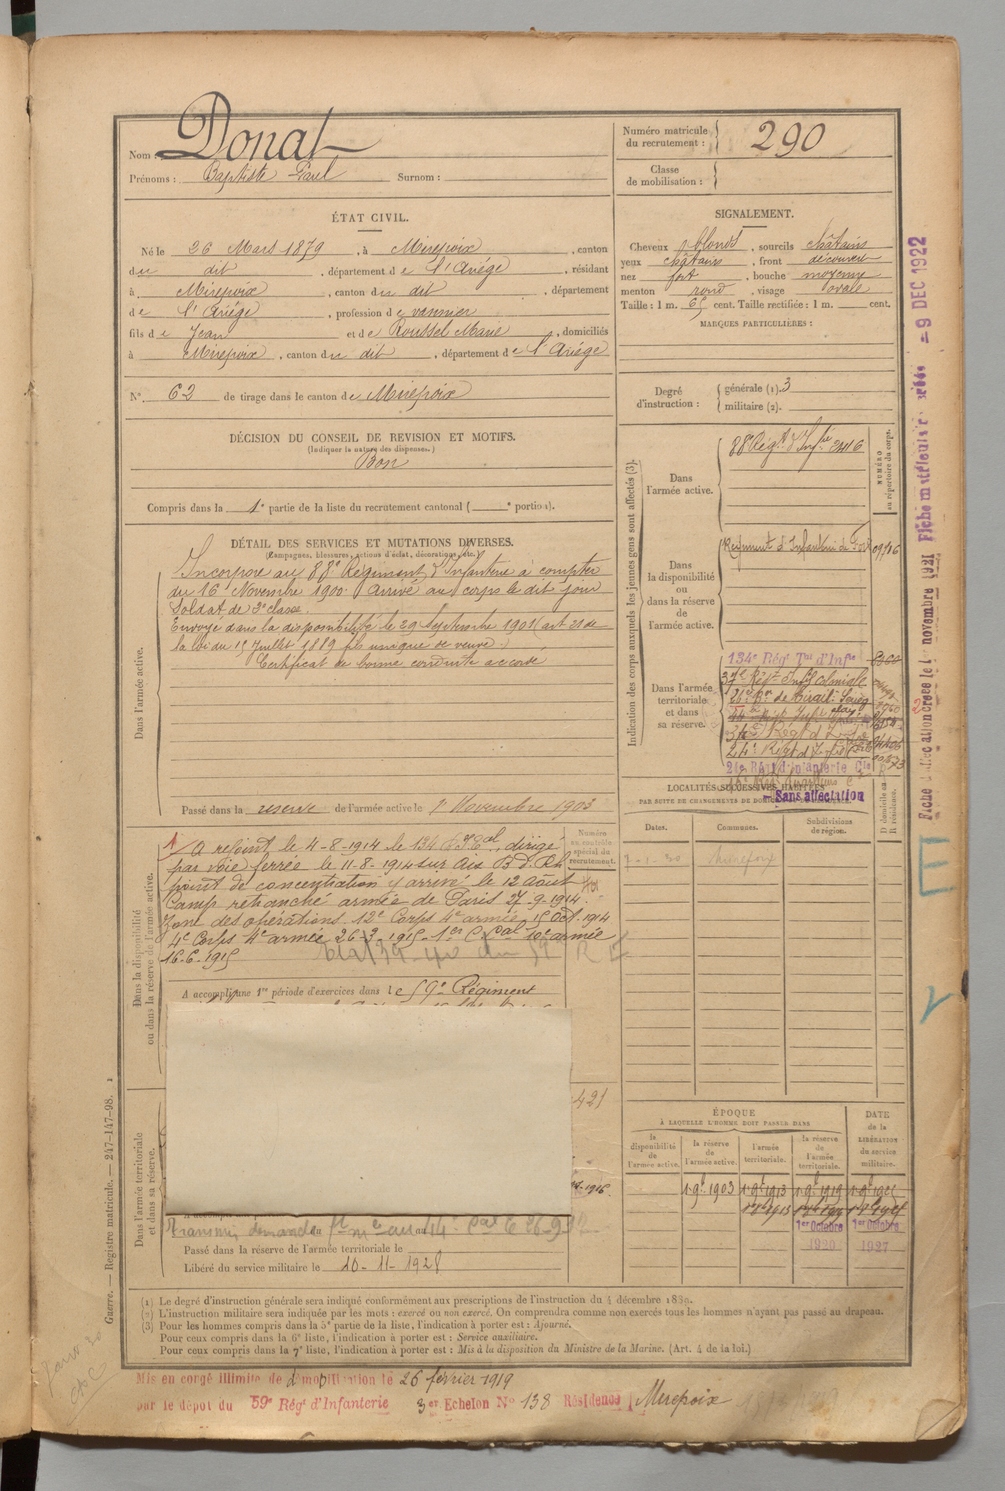 Nom : Donat
Prénoms : Baptiste Paul Surnom :
Numéro matricule du recrutement : 290
Classe de mobilisation :
ÉTAT CIVIL.
Né le 26 Mars 1879, à Mirepoix, canton
du dit, département de l'Ariége, résidant
à Mirepoix, canton du dit, département
de l'Ariége, profession de vannier
fils de Jean et de Roussel Marie, domiciliés
à Mirepoix, canton du dit, département de l'Ariége
N° 62 de tirage dans le canton de Mirepoix
DÉCISION DU CONSEIL DE REVISION ET MOTIFS.
(Indiquer la nature des dispenses.)
Bon
Compris dans la 1e partie de la liste du recrutement cantonal ( e portion).
SIGNALEMENT.
Cheveux blonds, sourcils châtains
yeux châtains, front découvert
nez fort, bouche moyenne
menton rond, visage ovale
Taille : 1 m. 65 cent. Taille rectifiée : 1 m. cent.
MARQUES PARTICULIÈRES :
Degré d'instruction : générale (1). 3
militaire (2).
DÉTAIL DES SERVICES ET MUTATIONS DIVERSES.
(Campagnes, blessures, actions d'éclat, décorations, etc.)
Dans l'armée active.
Incorporé au 88e Régiment d'Infanterie à compter
du 16 Novembre 1900. Arrivé au corps le dit jour
Soldat de 2e classe.
Envoyé dans la disponibilité le 29 Septembre 1901 (art 21 de
la loi du 15 Juillet 1889 fils unique de veuve)
Certificat de bonne conduite accordé
Passé dans la réserve de l'armée active le 1 Novembre 1903
Dans la disponibilité ou dans la réserve de l'armée active.
Numéro au contrôle spécial du recrutement.
A rejoint le 4-8-1914 le 134 dirigé
par voie ferrée le 11-8-1914 sur
point de concentration y arrivé le 12 août
Camp retranché armée de Paris 27-9-1914.
Zone des opérations 12e Corps 4e armée 15 Oct. 1914
4e Corps 4e armée 26-3-1915 - 1er C. Cal 10e armée
16-6-1915
A accompli une 1re période d'exercices dans le 59e Régiment
421
Dans l'armée territoriale et dans sa réserve.
Passé dans la réserve de l'armée territoriale le
Libéré du service militaire le 10-11-1928
Indication des corps auxquels les jeunes gens sont affectés (3).
NUMÉRO au répertoire du corps.
Dans l'armée active.
88e Régt d'Infie 2446
Dans la disponibilité ou dans la réserve de l'armée active.
Régiment d'Infanterie de Foix
Dans l'armée territoriale et dans sa réserve.
134e Régt Tal d'Infie
37e Régt Infie Coloniale
24e Régt d'Infie
21e Régt d'Infanterie Cle
Sans affectation
LOCALITÉS SUCCESSIVES HABITÉES
PAR SUITE DE CHANGEMENTS DE DOMICILE
Dates. Communes. Subdivisions de région. D domicile ou R résidence.
7-1-30 Mirepoix
ÉPOQUE
À LAQUELLE L'HOMME DOIT PASSER DANS
la disponibilité de l'armée active. la réserve de l'armée active. l'armée territoriale. la réserve de l'armée territoriale. DATE de la LIBÉRATION du service militaire.
1 9bre 1903 1 9bre 1913 1 9bre 1919
1er Octobre 1920 1er Octobre 1927
(1) Le degré d'instruction générale sera indiqué conformément aux prescriptions de l'instruction du 4 décembre 1889.
(2) L'instruction militaire sera indiquée par les mots : exercé ou non exercé. On comprendra comme non exercés tous les hommes n'ayant pas passé au drapeau.
(3) Pour les hommes compris dans la 5e partie de la liste, l'indication à porter est : Ajourné.
Pour ceux compris dans la 6e liste, l'indication à porter est : Service auxiliaire.
Pour ceux compris dans la 7e liste, l'indication à porter est : Mis à la disposition du Ministre de la Marine. (Art. 4 de la loi.)
Mis en congé illimité de démobilisation le 26 février 1919
par le dépôt du 59e Régt d'Infanterie 3er Echelon N° 138 Résidence Mirepoix
Guerre. — Registre matricule. — 247-147-98.
novembre 1921
- 9 DEC 1922